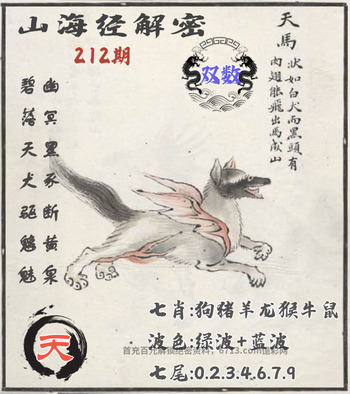 山海经解密
212期
天馬
狀如白犬而黑頭有
肉翅能飛出馬成山
双数
碧落天犬驱魑魅
幽冥黑豕断黄泉
天
七肖:狗猪羊龙猴牛鼠
波色:绿波+蓝波
首充百元解锁绝密资料，6713.com追彩网
七尾:0.2.3.4.6.7.9